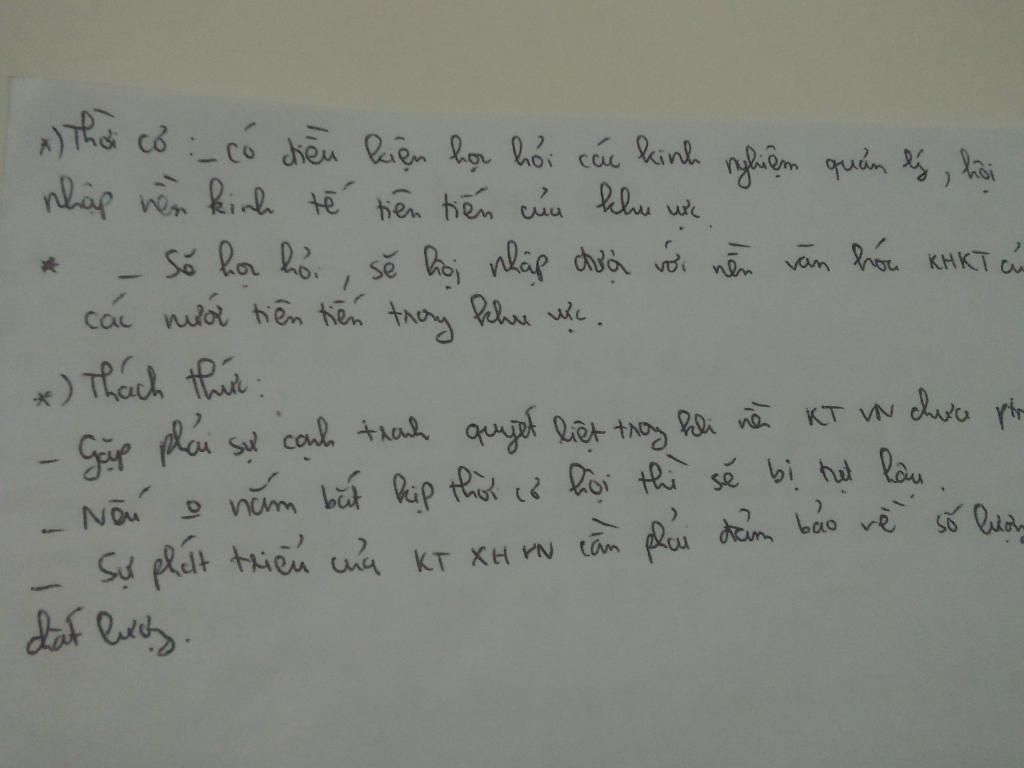 *) Thời cơ : - Có điều kiện học hỏi các kinh nghiệm quản lý, hội
nhập nền kinh tế tiên tiến của khu vực.
* - Sẽ học hỏi, sẽ hội nhập được với nền văn hóa KHKT củ
các nước tiên tiến trong khu vực.
*) Thách thức:
- Gặp phải sự cạnh tranh quyết liệt trong khi nền KT VN chưa
- Nếu o nắm bắt kịp thời cơ hội thì sẽ bị tụt hậu.
- Sự phát triển của KT XH VN cần phải đảm bảo về số lượng
chất lượng.